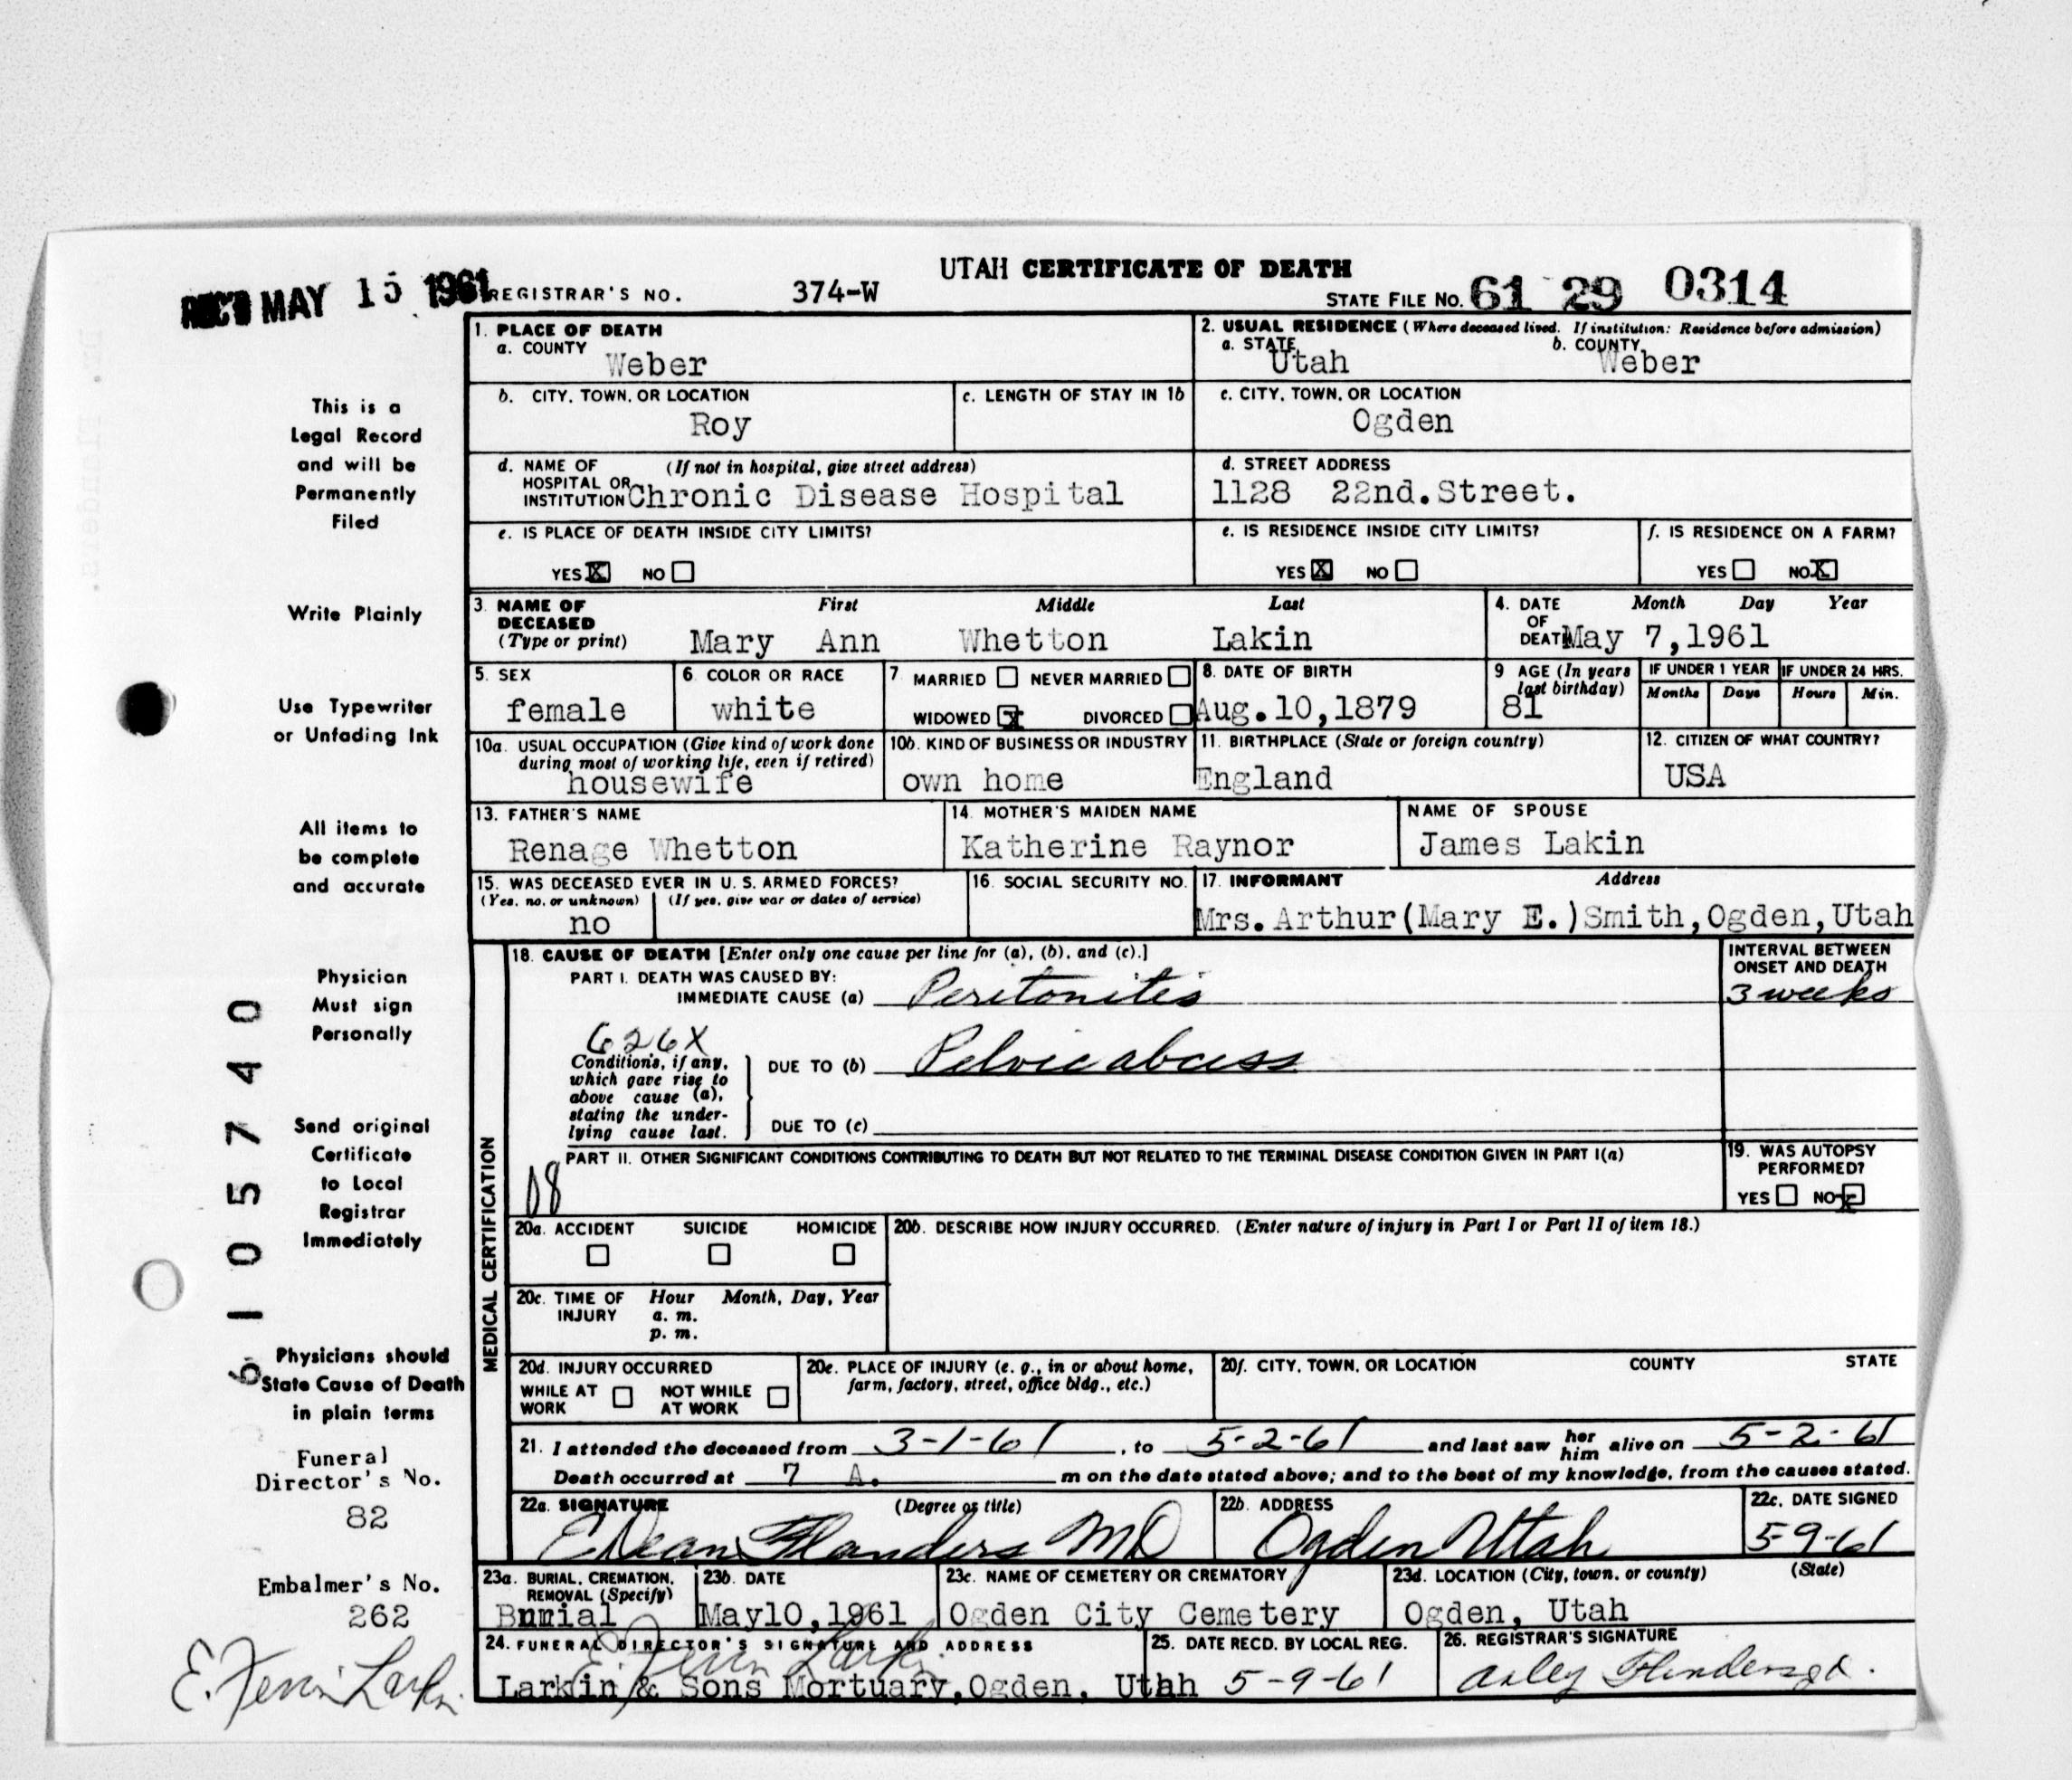 UTAH CERTIFICATE OF DEATH
REC'D MAY 15 1961 REGISTRAR'S NO. 374-W STATE FILE NO. 61 29 0314
This is a
Legal Record
and will be
Permanently
Filed
Write Plainly
Use Typewriter
or Unfading Ink
All items to
be complete
and accurate
Physician
Must sign
Personally
Send original
Certificate
to Local
Registrar
Immediately
Physicians should
State Cause of Death
in plain terms
Funeral
Director's No.
82
Embalmer's No.
262
6105740
1. PLACE OF DEATH
a. COUNTY
Weber
2. USUAL RESIDENCE (Where deceased lived. If institution: Residence before admission)
a. STATE b. COUNTY
Utah Weber
b. CITY, TOWN, OR LOCATION
Roy
c. LENGTH OF STAY IN 1b
c. CITY, TOWN, OR LOCATION
Ogden
d. NAME OF (If not in hospital, give street address)
HOSPITAL OR
INSTITUTION Chronic Disease Hospital
d. STREET ADDRESS
1128 22nd. Street.
e. IS PLACE OF DEATH INSIDE CITY LIMITS?
YES X NO
e. IS RESIDENCE INSIDE CITY LIMITS?
YES X NO
f. IS RESIDENCE ON A FARM?
YES NO X
3. NAME OF First Middle Last
DECEASED
(Type or print) Mary Ann Whetton Lakin
4. DATE Month Day Year
OF
DEATH May 7, 1961
5. SEX
female
6. COLOR OR RACE
white
7 MARRIED NEVER MARRIED
WIDOWED X DIVORCED
8. DATE OF BIRTH
Aug. 10, 1879
9 AGE (In years
last birthday)
81
IF UNDER 1 YEAR IF UNDER 24 HRS.
Months Days Hours Min.
10a. USUAL OCCUPATION (Give kind of work done
during most of working life, even if retired)
housewife
10b. KIND OF BUSINESS OR INDUSTRY
own home
11. BIRTHPLACE (State or foreign country)
England
12. CITIZEN OF WHAT COUNTRY?
USA
13. FATHER'S NAME
Renage Whetton
14. MOTHER'S MAIDEN NAME
Katherine Raynor
NAME OF SPOUSE
James Lakin
15. WAS DECEASED EVER IN U. S. ARMED FORCES?
(Yes, no, or unknown) (If yes, give war or dates of service)
no
16. SOCIAL SECURITY NO.
17. INFORMANT Address
Mrs. Arthur (Mary E.) Smith, Ogden, Utah
MEDICAL CERTIFICATION
18. CAUSE OF DEATH [Enter only one cause per line for (a), (b), and (c).]
PART I. DEATH WAS CAUSED BY:
IMMEDIATE CAUSE (a) Peritonitis
INTERVAL BETWEEN
ONSET AND DEATH
3 weeks
626X
Conditions, if any,
which gave rise to
above cause (a),
stating the under-
lying cause last.
DUE TO (b) Pelvic abcess
DUE TO (c)
PART II. OTHER SIGNIFICANT CONDITIONS CONTRIBUTING TO DEATH BUT NOT RELATED TO THE TERMINAL DISEASE CONDITION GIVEN IN PART I(a)
19. WAS AUTOPSY
PERFORMED?
YES NO X
20a. ACCIDENT SUICIDE HOMICIDE
20b. DESCRIBE HOW INJURY OCCURRED. (Enter nature of injury in Part I or Part II of item 18.)
20c. TIME OF Hour Month, Day, Year
INJURY a. m.
p. m.
20d. INJURY OCCURRED
WHILE AT WORK NOT WHILE AT WORK
20e. PLACE OF INJURY (e. g., in or about home,
farm, factory, street, office bldg., etc.)
20f. CITY, TOWN, OR LOCATION COUNTY STATE
21. I attended the deceased from 3-1-61, to 5-2-61 and last saw her him alive on 5-2-61
Death occurred at 7 A. m on the date stated above; and to the best of my knowledge, from the causes stated.
22a. SIGNATURE (Degree or title)
E Dean Flanders MD
22b. ADDRESS
Ogden Utah
22c. DATE SIGNED
5-9-61
23a. BURIAL, CREMATION,
REMOVAL (Specify)
Burial
23b. DATE
May 10, 1961
23c. NAME OF CEMETERY OR CREMATORY
Ogden City Cemetery
23d. LOCATION (City, town, or county) (State)
Ogden, Utah
24. FUNERAL DIRECTOR'S SIGNATURE AND ADDRESS
Larkin & Sons Mortuary, Ogden, Utah
25. DATE RECD. BY LOCAL REG.
5-9-61
26. REGISTRAR'S SIGNATURE